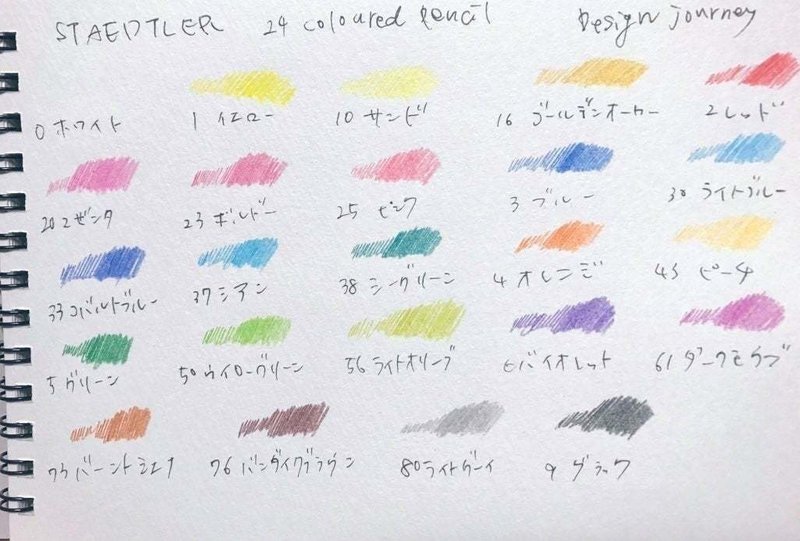 STAEDTLER 24 coloured pencil Design journey
0 ホワイト 1 イエロー 10 サンド 16 ゴールデンオーカー 2 レッド
20 マゼンタ 23 ボルドー 25 ピンク 3 ブルー 30 ライトブルー
33 コバルトブルー 37 シアン 38 シーグリーン 4 オレンジ 43 ピーチ
5 グリーン 50 ウイローグリーン 56 ライトオリーブ 6 バイオレット 61 ダークモウブ
73 バーントシエナ 76 バンダイクブラウン 80 ライトグレイ 9 ブラック